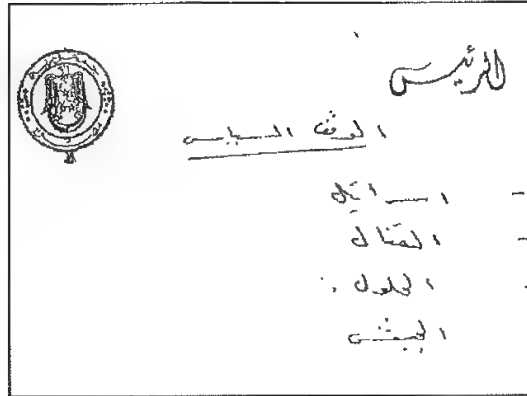 الرئيس
الموقف السياسى
- اسرائيل
- القتال
- الحلول :
الجيش